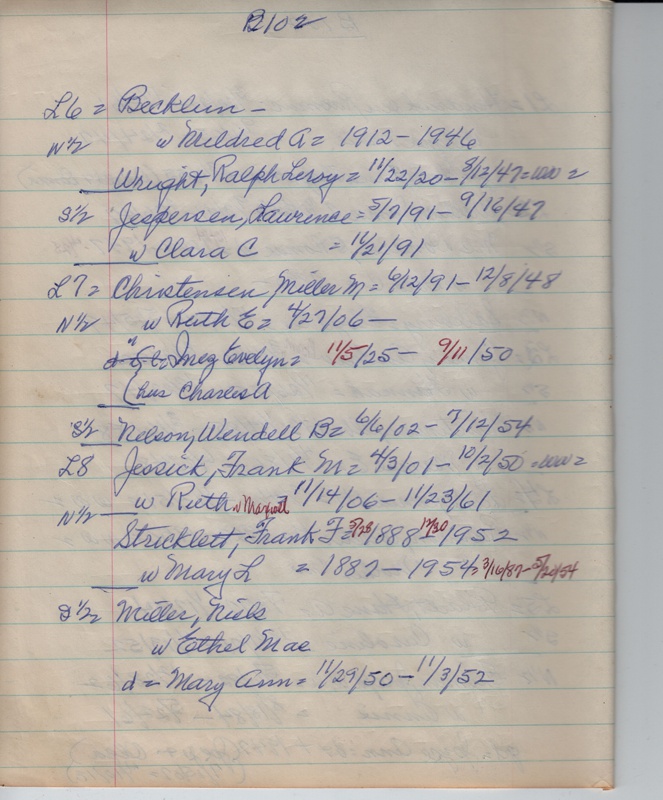 B102
L6 = Becklun –
N½ w Mildred A = 1912 – 1946
Wright, Ralph Leroy = 11/22/20 – 8/12/47 = WW =
S½ Jespersen, Laurence = 5/7/91 – 9/16/47
w Clara C = 11/21/91
L7 = Christensen, Miller M = 6/12/91 – 12/8/48
N½ w Ruth E = 4/27/06 –
Inez Evelyn = 11/5/25 – 9/11/50
(hus Charles A
S½ Nelson, Wendell B = 6/6/02 – 7/12/54
L8 Jessick, Frank M = 4/3/01 – 10/2/50 = WW =
N½ w Ruth 11/14/06 – 11/23/61
Stricklett, Frank F = 5/28 1888 12/30 1952
w Mary L = 1887 – 1954 = 3/16/87 – 5/24/54
S½ Miller, Niels
w Ethel Mae
d = Mary Ann = 11/29/50 – 11/3/52